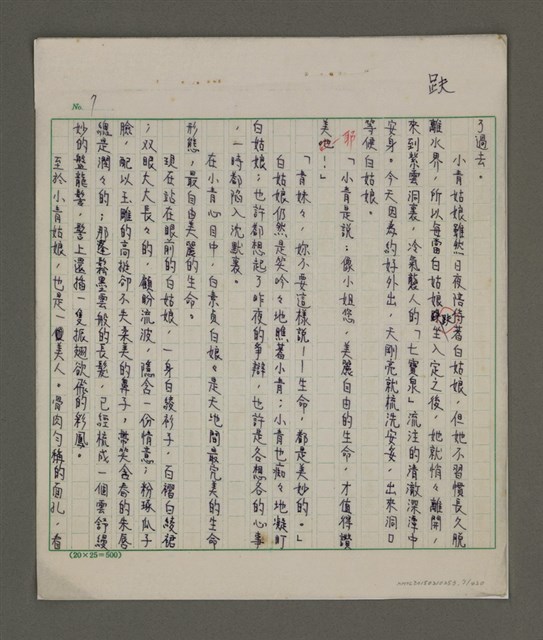 跌
No. 7
了過去。
小青姑娘雖然日夜陪侍著白姑娘，但她不習慣長久脫
離水界，所以每當白姑娘趺坐入定之後，她就悄々離開，
來到紫雲洞裏，冷氣襲人的「七寶泉」流注的清澈深潭中
安身。今天因為約好外出，天剛亮就梳洗妥當，出來洞口
等候白姑娘。
「小青是說：像小姐您，美麗自由的生命，才值得讚
美耶！」
「青妹々，妳不要這樣說——生命，都是美妙的。」
白姑娘仍然是笑吟々地瞧著小青；小青也癡々地凝盯
白姑娘；也許都想起了昨夜的爭辯，也許是各想各的心事
，一時都陷入沈默裏。
在小青心目中，白素貞白姑娘々是天地間最完美的生命
形態，最自由美麗的生命。
現在站在眼前的白姑娘，一身白綾衫子，百褶白綾裙
；双眼大大長々的，顧盼流波，隱含一份情意；粉琢瓜子
臉，配以玉雕的高挺卻不失柔美的鼻子，帶笑含春的朱唇
總是潤々的；那蓬鬆墨雲般的長髮，已經梳成一個雲舒縵
妙的盤龍髻，髻上還插一隻振翅欲飛的彩鳳。
至於小青姑娘，也是一個美人。骨肉勻稱的面孔，看
(20×25=500)